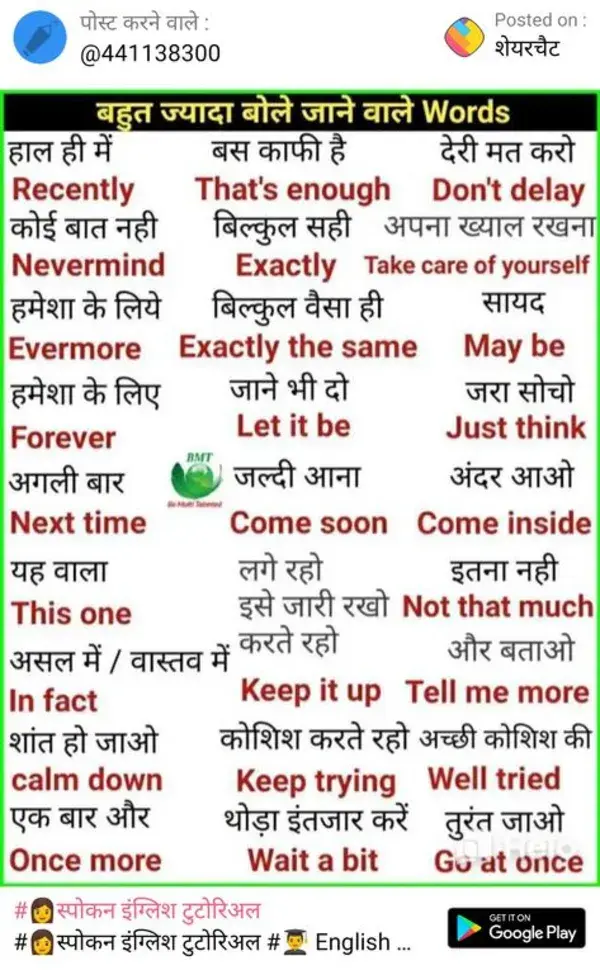 पोस्ट करने वाले :
@441138300
Posted on :
शेयरचैट
बहुत ज्यादा बोले जाने वाले Words
हाल ही में बस काफी है देरी मत करो
Recently That's enough Don't delay
कोई बात नही बिल्कुल सही अपना ख्याल रखना
Nevermind Exactly Take care of yourself
हमेशा के लिये बिल्कुल वैसा ही सायद
Evermore Exactly the same May be
हमेशा के लिए जाने भी दो जरा सोचो
Forever Let it be Just think
BMT
अगली बार जल्दी आना अंदर आओ
Next time Come soon Come inside
यह वाला लगे रहो इतना नही
This one इसे जारी रखो Not that much
असल में / वास्तव में करते रहो और बताओ
In fact Keep it up Tell me more
शांत हो जाओ कोशिश करते रहो अच्छी कोशिश की
calm down Keep trying Well tried
एक बार और थोड़ा इंतजार करें तुरंत जाओ
Once more Wait a bit Go at once
#👩स्पोकन इंग्लिश टुटोरिअल
#👩स्पोकन इंग्लिश टुटोरिअल #👨‍🎓 English ...
GET IT ON
Google Play